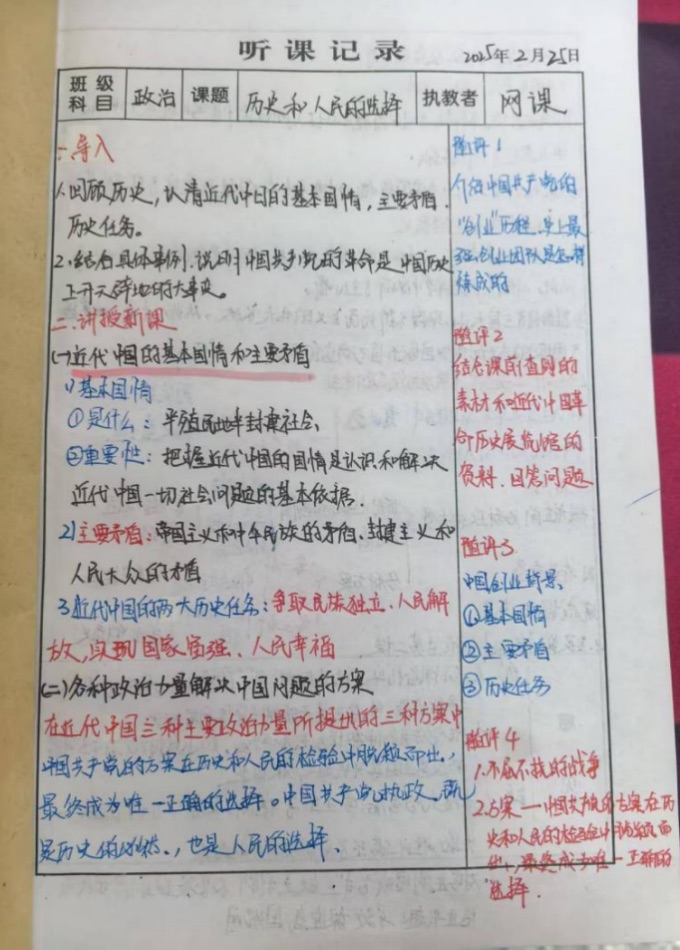 听课记录 2025年2月25日
班级科目 政治 课题 历史和人民的选择 执教者 网课
一.导入
1.回顾历史,认清近代中国的基本国情,主要矛盾.
历史任务。
2.结合具体事例.说明中国共产党的革命是中国历史
上开天辟地的大事变。
二.讲授新课
(一)近代中国的基本国情和主要矛盾
1)基本国情
①是什么:半殖民地半封建社会.
②重要性:把握近代中国的国情是认识和解决
近代中国一切社会问题的基本依据.
2)主要矛盾:帝国主义和中华民族的矛盾、封建主义和
人民大众的矛盾
3.近代中国的两大历史任务:争取民族独立、人民解
放,实现国家富强、人民幸福
(二)各种政治力量解决中国问题的方案
在近代中国三种主要政治力量所提出的三种方案中
中国共产党的方案在历史和人民的检验中脱颖而出.,
最终成为唯一正确的选择。中国共产党执政,既
是历史的选择.,也是人民的选择.
随评1
介绍中国共产党的
"创业"历程,史上最
强创业团队是怎样
炼成的
随评2
结合课前查阅的
素材和近代中国革
命历史展览馆的
资料.回答问题
随评3
中国创业背景
①基本国情
②主要矛盾
③历史任务
随评4
1.不屈不挠的战争
2.方案一中国共产党的方案在历
史和人民的检验中脱颖而
出.,最终成为唯一正确的
选择.